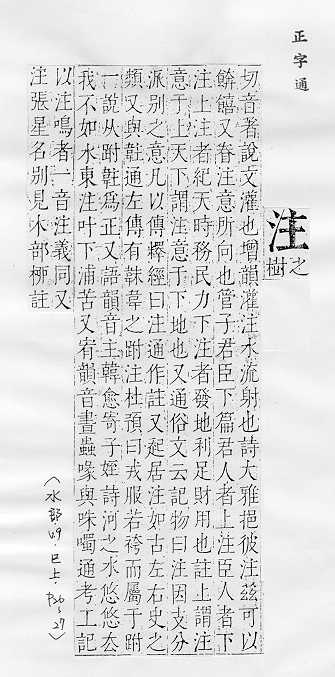 正字通
注
之
樹
切音著說文灌也增韻灌注水流射也詩大雅挹彼注茲可以
餴饎又眷注意所向也管子君臣下篇君人者上注臣人者下
注上注者紀天時務民力下注者發地利足財用也註上謂注
意于上天下謂注意于下地也又通俗文云記物曰注因支分
派别之意凡以傳釋經曰注通作註又起居注如古左右史之
類又與通左傳有韎韋之跗注杜預曰戎服若袴而屬于跗
一說从跗爲正又語韻音主韓愈寄子姪詩河之水悠悠去
我不如水東注叶下浦苦又宥韻音晝蟲喙與咮噣通考工記
以注鳴者一音注義同又
注張星名别見木部柳註
(水部 巳上. P26~27)